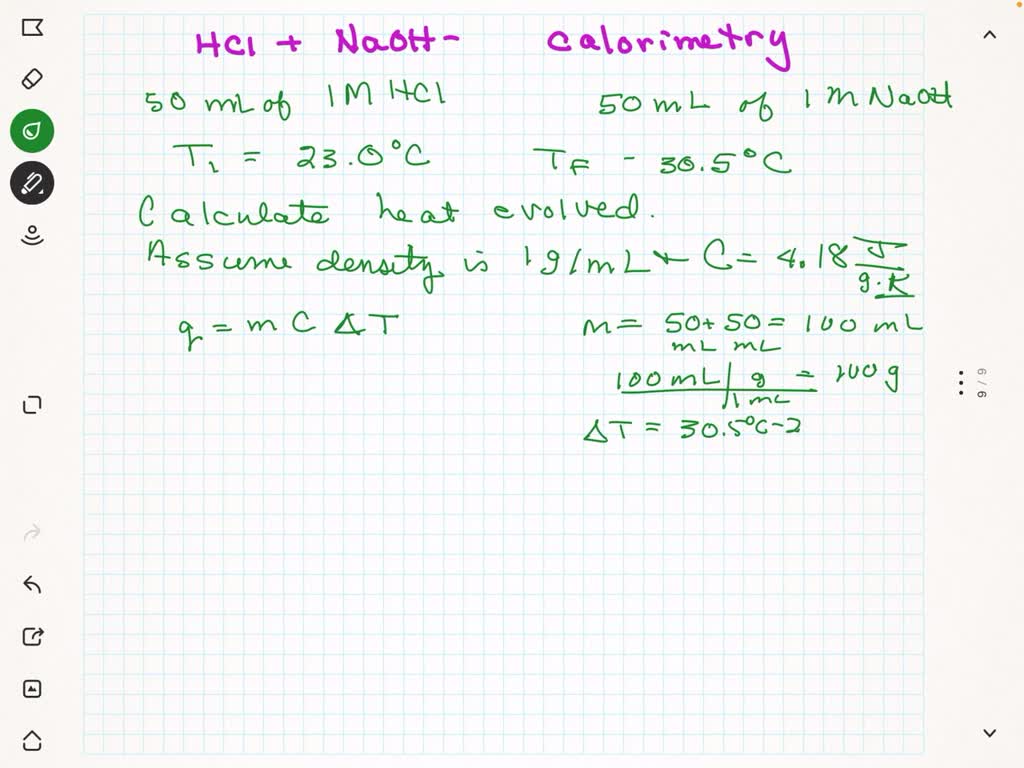 HCl + NaOH - Calorimetry
50 mL of 1M HCl 50 mL of 1 M NaOH
T₁ = 23.0°C TF - 30.5°C
Calculate heat evolved.
Assume density is 1g/mL + C = 4.18 J/g·K
q = m C ΔT m = 50 + 50 = 100 mL
mL mL
100 mL | g = 100 g
1 mL
ΔT = 30.5°C - 2
6/6